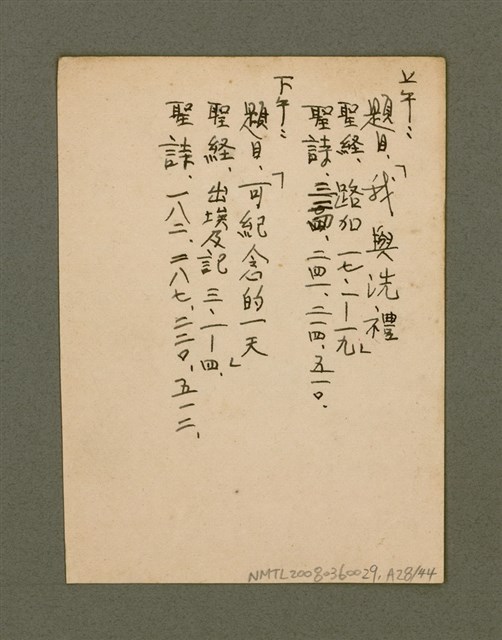 上午：
題目、「我與洗禮」
聖経、路加 一七、一－一九
聖詩、二四一、二一四、五一〇、
下午：
題目、「可紀念的一天」
聖経、出埃及記 三、一－四、
聖詩、一八二、二八七、二二〇、五一二、
NMTL20080360029. A28/44